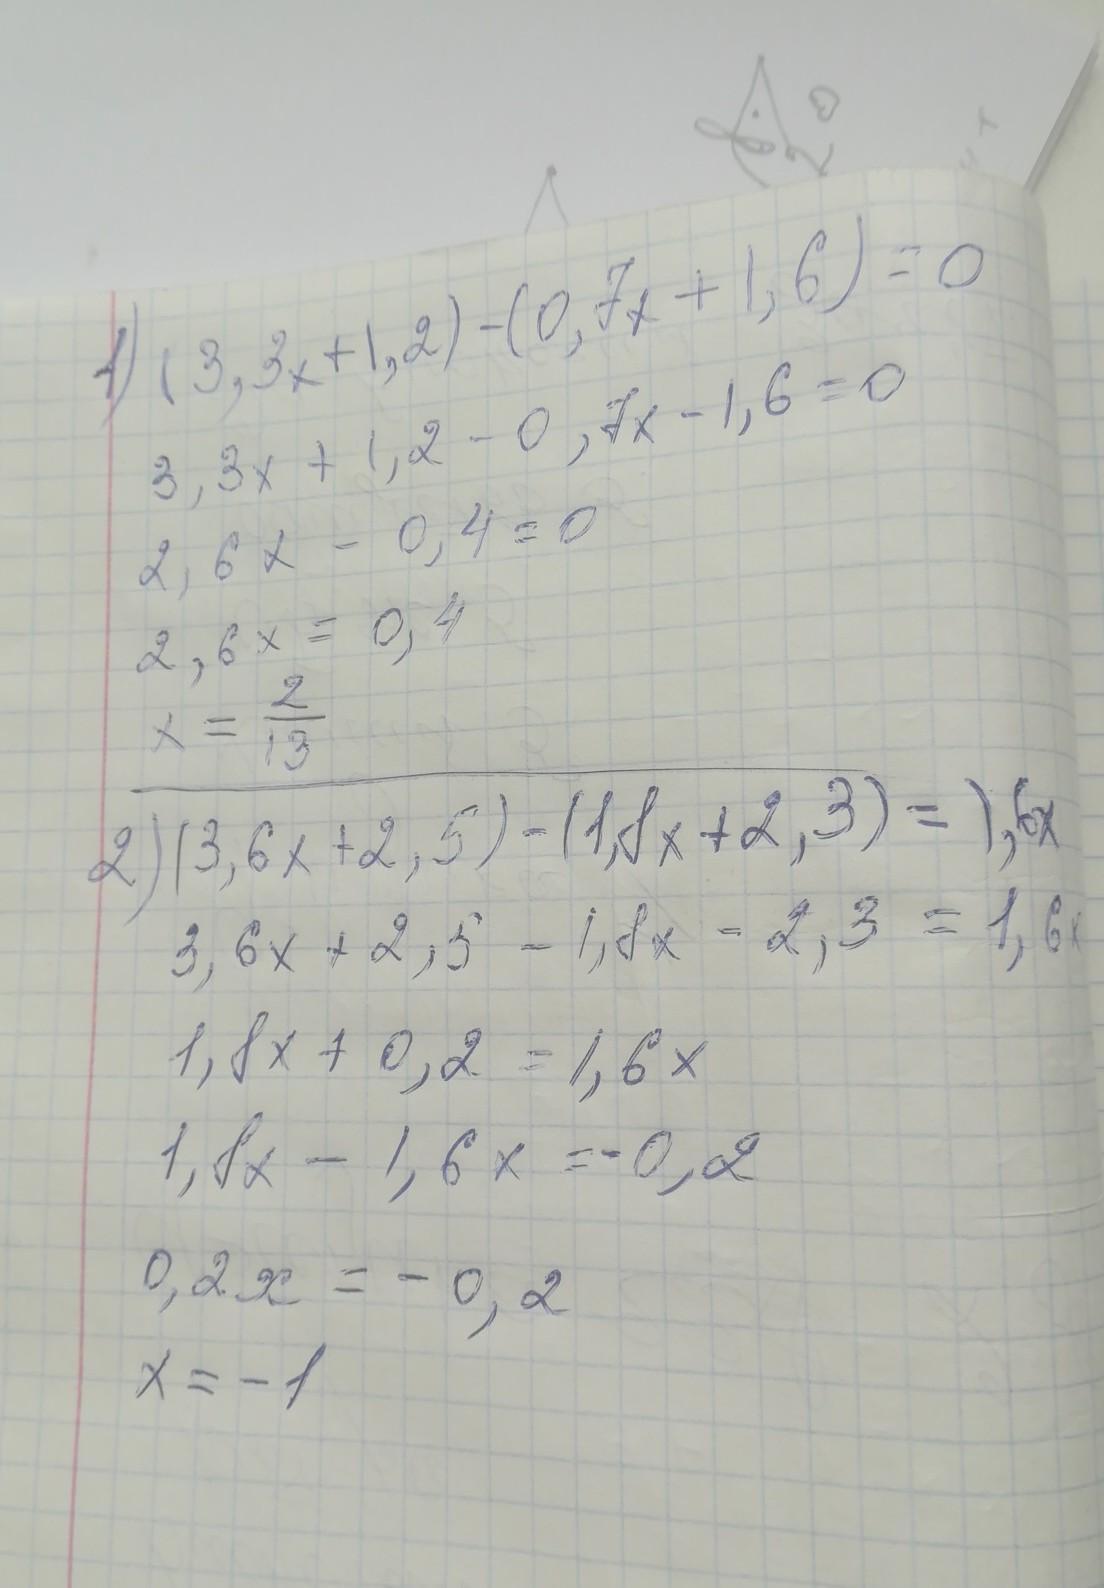 1) (3,3x+1,2)-(0,7x+1,6)=0
3,3x+1,2-0,7x-1,6=0
2,6x-0,4=0
2,6x=0,4
x=2/13
2) (3,6x+2,5)-(1,8x+2,3)=1,6x
3,6x+2,5-1,8x-2,3=1,6x
1,8x+0,2=1,6x
1,8x-1,6x=-0,2
0,2x=-0,2
x=-1